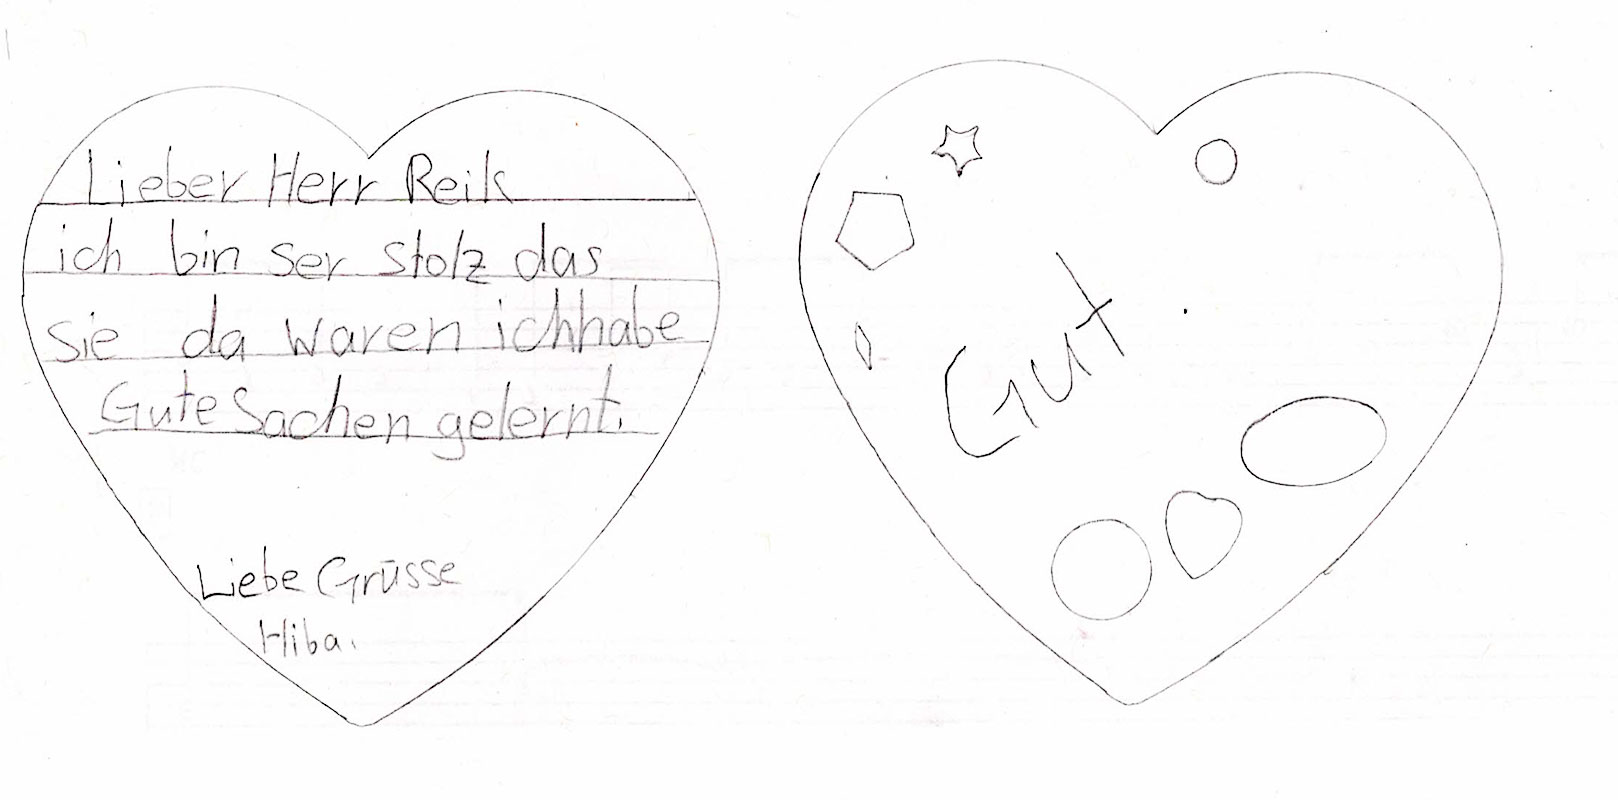 Lieber Herr Reik
ich bin ser stolz das
sie da waren ichhabe
Gute Sachen gelernt.
Liebe Grüsse
Hiba.
Gut